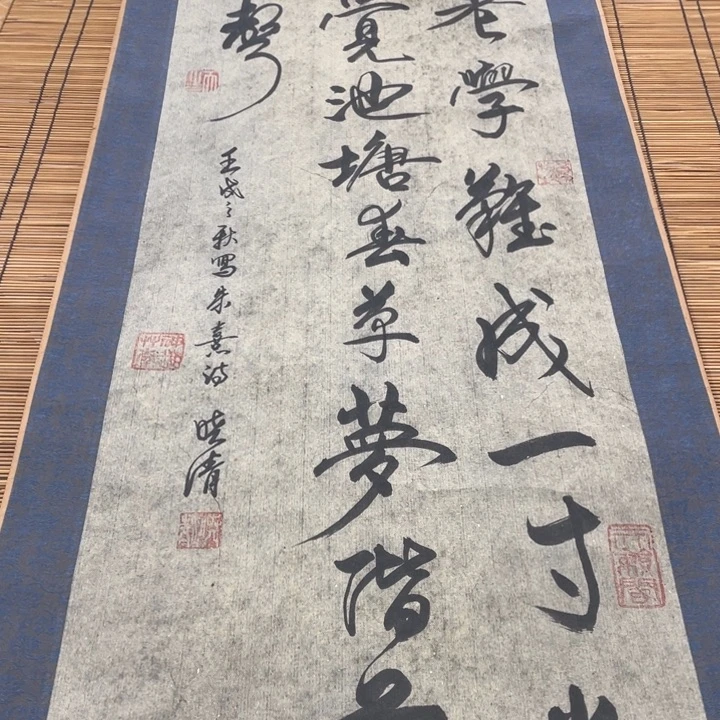 老學難成一寸
覺池塘春草夢階
聲
壬戌之秋寫朱熹詩 曉清